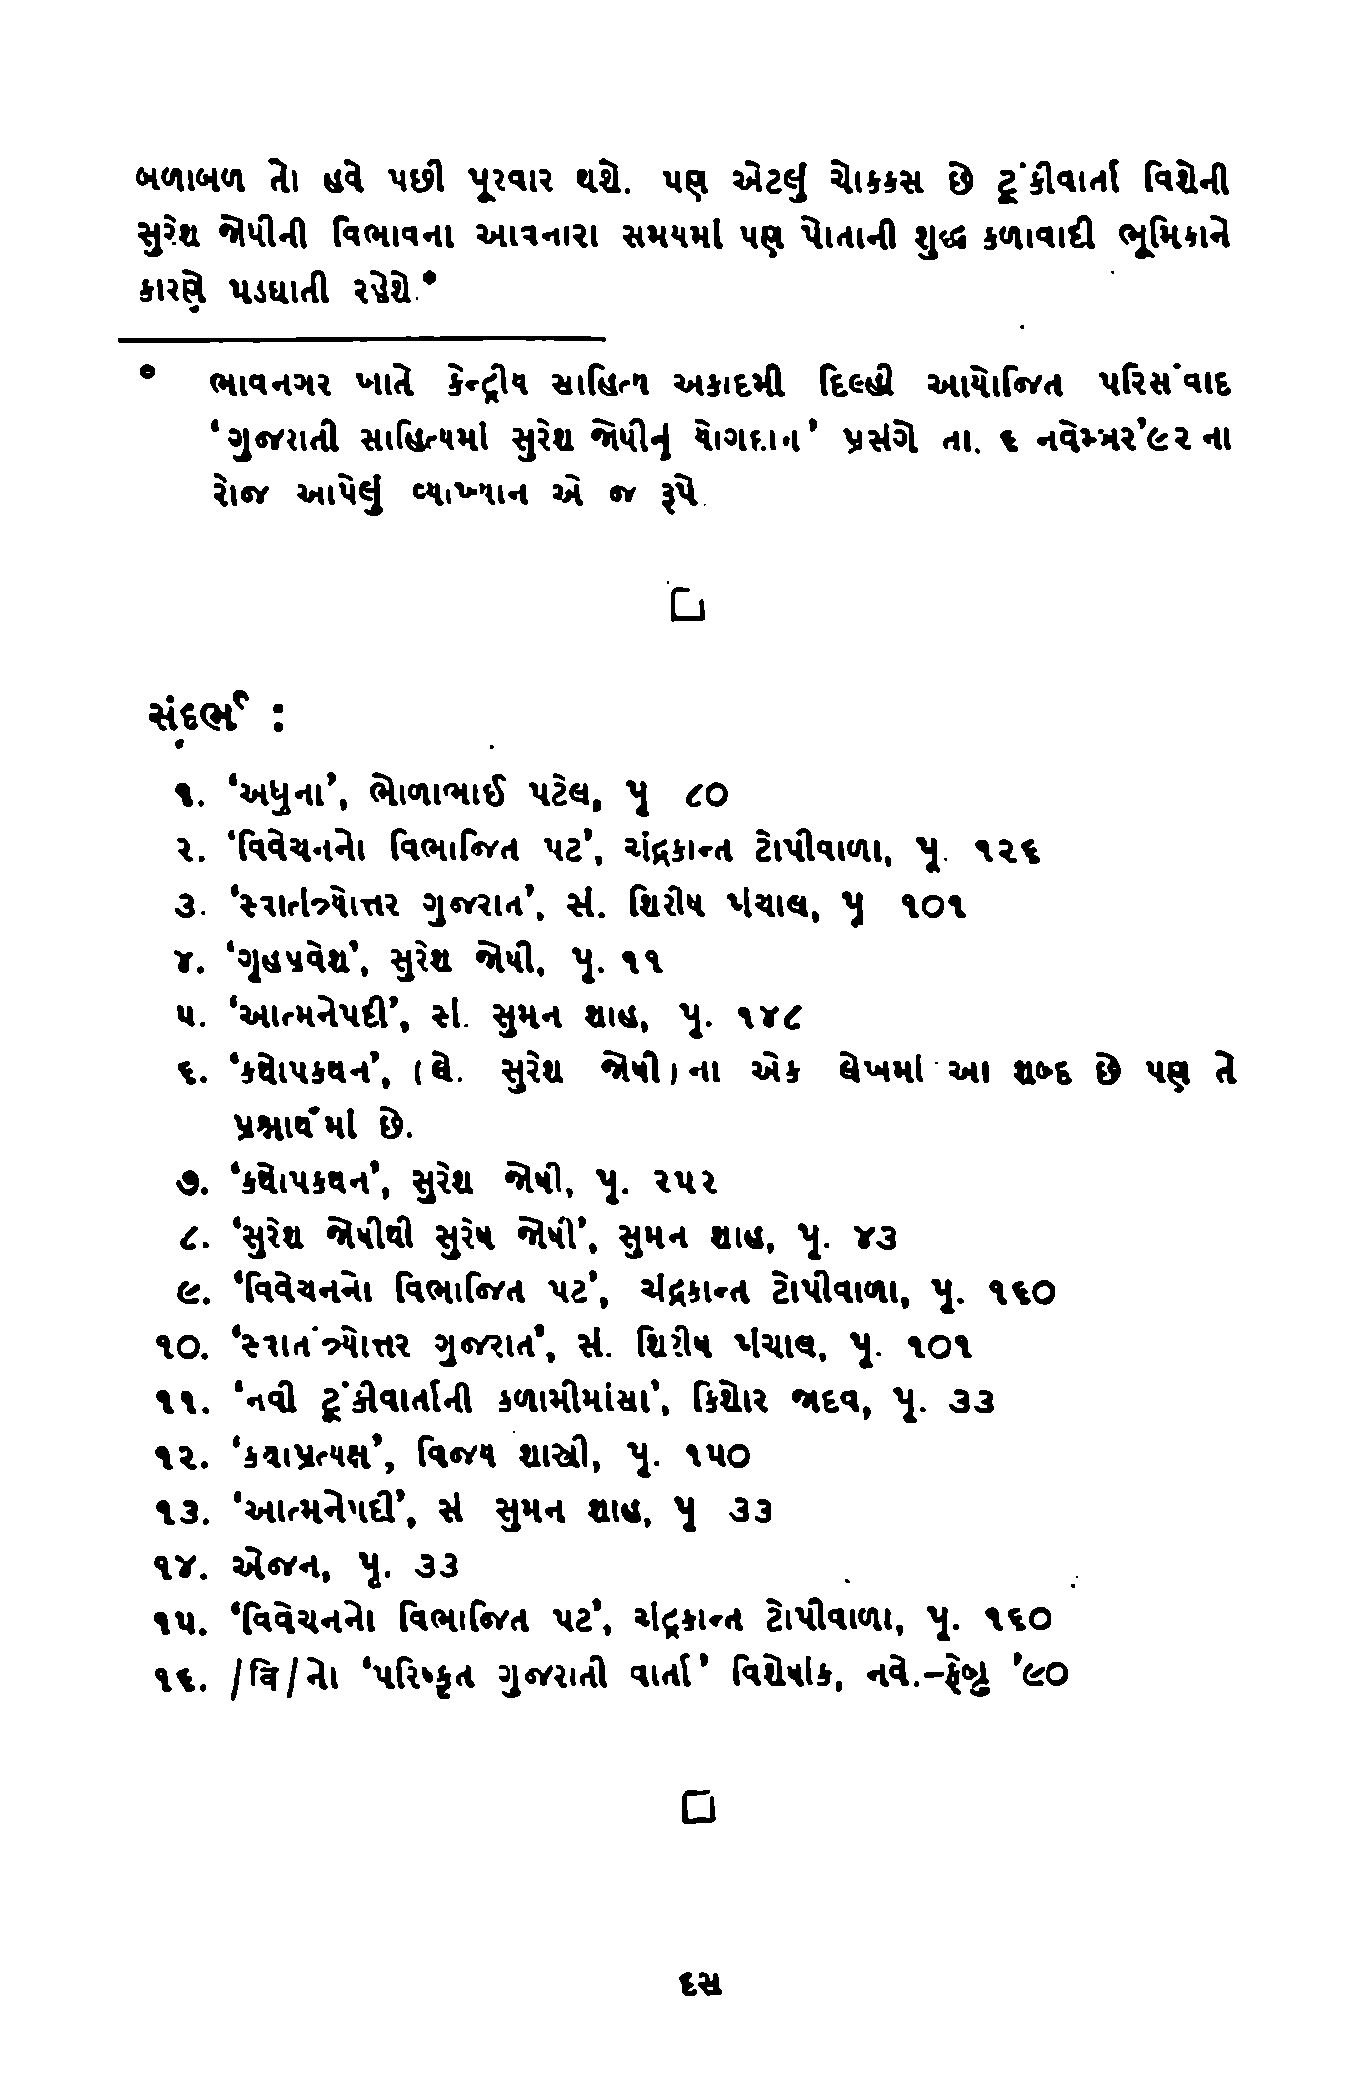 બળાબળ તો હવે પછી પૂરવાર થશે. પણ એટલું ચોક્કસ છે ટૂંકીવાર્તા વિશેની
સુરેશ જોષીની વિભાવના આવનારા સમયમાં પણ પોતાની શુદ્ધ કળાવાદી ભૂમિકાને
કારણે પડઘાતી રહેશે.*
* ભાવનગર ખાતે કેન્દ્રીય સાહિત્ય અકાદમી દિલ્હી આયોજિત પરિસંવાદ
‘ગુજરાતી સાહિત્યમાં સુરેશ જોષીનું યોગદાન’ પ્રસંગે તા. ૬ નવેમ્બર’૯૨ ના
રોજ આપેલું વ્યાખ્યાન એ જ રૂપે.
સંદર્ભ :
૧. ‘અધુના’, ભોળાભાઈ પટેલ, પૃ ૮૦
૨. ‘વિવેચનનો વિભાજિત પટ’, ચંદ્રકાન્ત ટોપીવાળા, પૃ. ૧૨૬
૩. ‘સ્વાતંત્ર્યોત્તર ગુજરાત’, સં. શિરીષ પંચાલ, પૃ ૧૦૧
૪. ‘ગૃહપ્રવેશ’, સુરેશ જોષી, પૃ. ૧૧
૫. ‘આત્મનેપદી’, સં. સુમન શાહ, પૃ. ૧૪૮
૬. ‘કથોપકથન’, (લે. સુરેશ જોષી)ના એક લેખમાં આ શબ્દ છે પણ તે
પ્રશ્નાર્થમાં છે.
૭. ‘કથોપકથન’, સુરેશ જોષી, પૃ. ૨૫૨
૮. ‘સુરેશ જોષીથી સુરેષ જોષી’, સુમન શાહ, પૃ. ૪૩
૯. ‘વિવેચનનો વિભાજિત પટ’, ચંદ્રકાન્ત ટોપીવાળા, પૃ. ૧૬૦
૧૦. ‘સ્વાતંત્ર્યોત્તર ગુજરાત’, સં. શિરીષ પંચાલ, પૃ. ૧૦૧
૧૧. ‘નવી ટૂંકીવાર્તાની કળામીમાંસા’, કિશોર જાદવ, પૃ. ૩૩
૧૨. ‘કથાપ્રત્યક્ષ’, વિજય શાસ્ત્રી, પૃ. ૧૫૦
૧૩. ‘આત્મનેપદી’, સં સુમન શાહ, પૃ ૩૩
૧૪. એજન, પૃ. ૩૩
૧૫. ‘વિવેચનનો વિભાજિત પટ’, ચંદ્રકાન્ત ટોપીવાળા, પૃ. ૧૬૦
૧૬. /વિ/નો ‘પરિષ્કૃત ગુજરાતી વાર્તા’ વિશેષાંક, નવે.–ફેબ્રુ ’૯૦
દસ